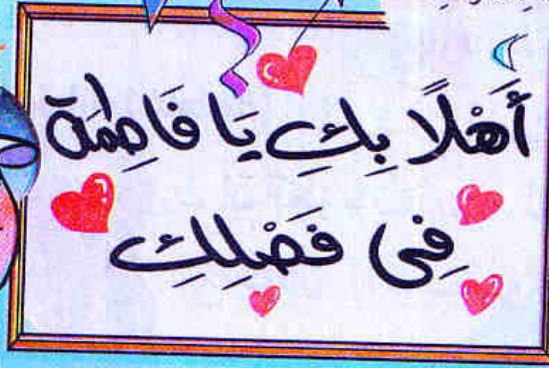 أَهْلًا بِكِ يَا فَاطِمَة
فِى فَصْلِكِ